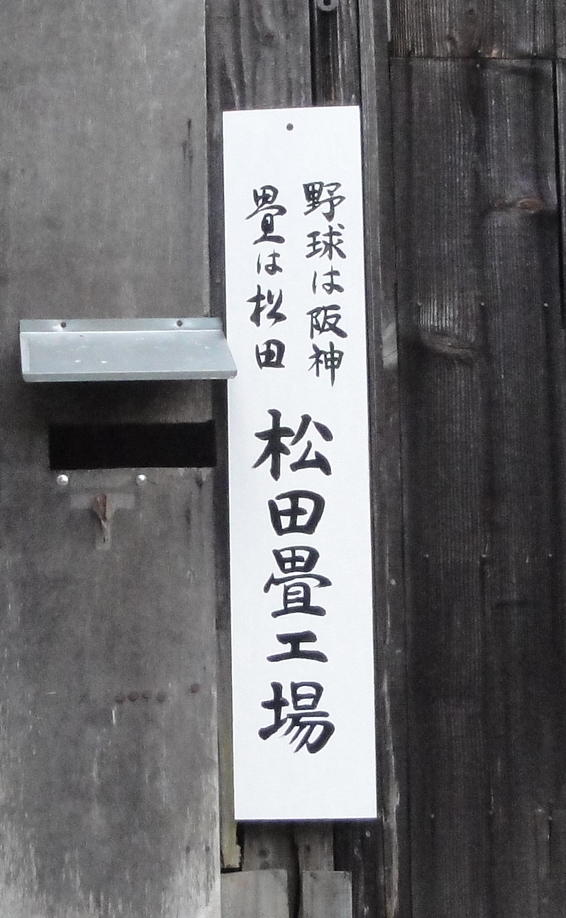 野球は阪神
畳は松田
松田畳工場